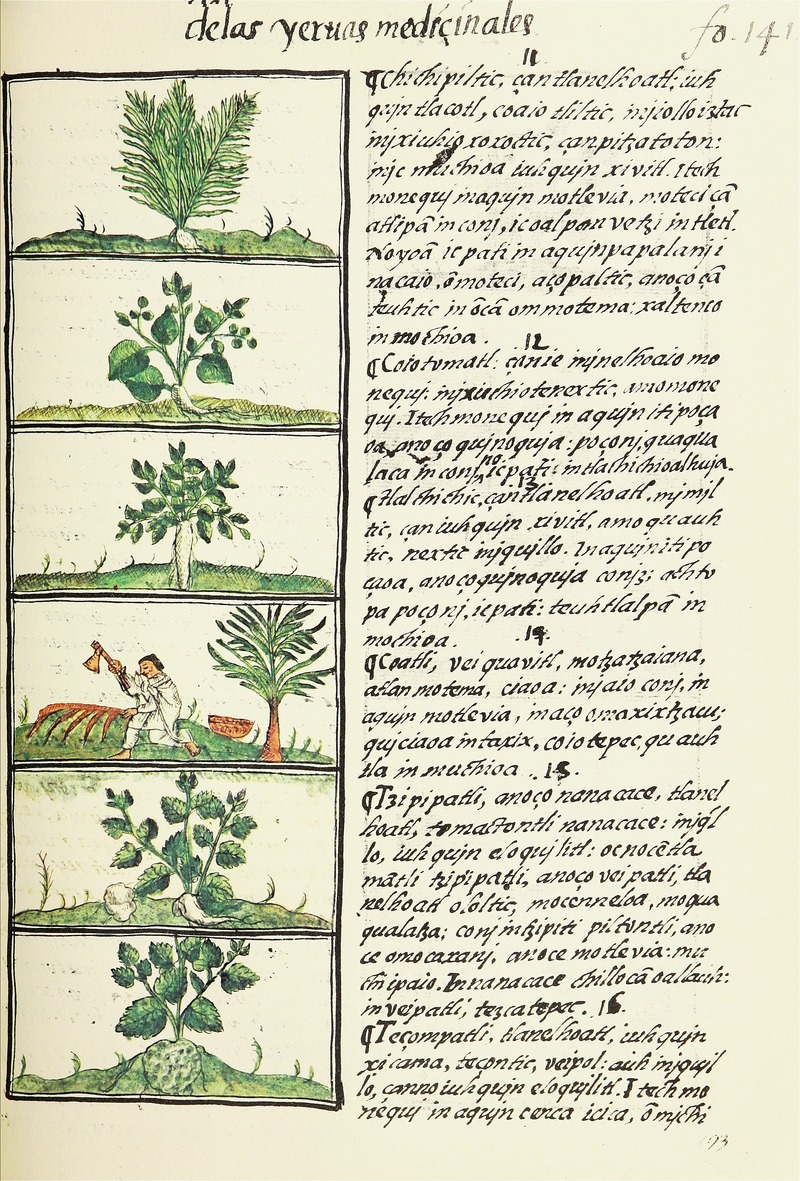 delas yeruas mediçinales
fo. 141
11
¶Chichipiltic, çan tlanelhoatl: iuh
qujn tlacotl, coaio tliltic, injiollo iztac
injxiuhio xoroctic, çan pitzatoton:
mjc muchioa iuhqujn xivitl. Itech
monequj inaqujn motlevia, moteci çã
atlipã in conj, ic oalpanvetzi in tletl.
No yoã ic pati in aqujn papalanj i
nacaio, õmoteci, aço paltic, anoço çã
teuhtic in õcã ommotema: xaltenco
in mochioa.
12
¶Coiotomatl: çan ie injnelhoaio mo
nequj: injxiuhio tenextic, amo mone
quj. Itech monequj in aqujn itipoça
oa, anoço qujnoquja: poçonj, quaqua
laca in conj, no ic pati in tlachichioalhuja.
13
¶Tlalchichic, çan tlanelhoatl, mjmjl
tic, çan iuhqujn xivitl, amo quauh
tic, nextic injqujllo. In aqujn itipo
çaoa, anoço qujnoquja conjz: achto
pa poçonj, ic pati: teuhtlalpã in
mochioa.
14
¶Coatli, vei quavitl, motzatzaiana,
atlan motema, ciaoa: in jaio conj, in
aqujn motlevia, in aço omaxixtzacu;
quiciaoa in taxix, coiotepec, quauh
tla in muchioa.
15.
¶Tzipipatli, anoço nanacace, tlanel
hoatl, tomactontli nanacace: injqujl
lo, iuhqujn eloqujlitl: oc nocẽtla
mãtli tzipipatli, anoço vei patli, tla
nelhoatl ololtic, mocenneloa, moqua
qualatza; conj in tzipiti piltontli, ano
ce omocaxanj, anoce motlevia: mu
chipaio. In nanacace chillocã oallauh:
in vei patli, tezcatepec.
16.
¶Teçompatli, tlanelhoatl, iuhqujn
xicama, teçontic, veipol: auh injqujl
lo, çanno iuhqujn eloqujlitl. Itech mo
nequj in aqujn cenca icica, õmjchi